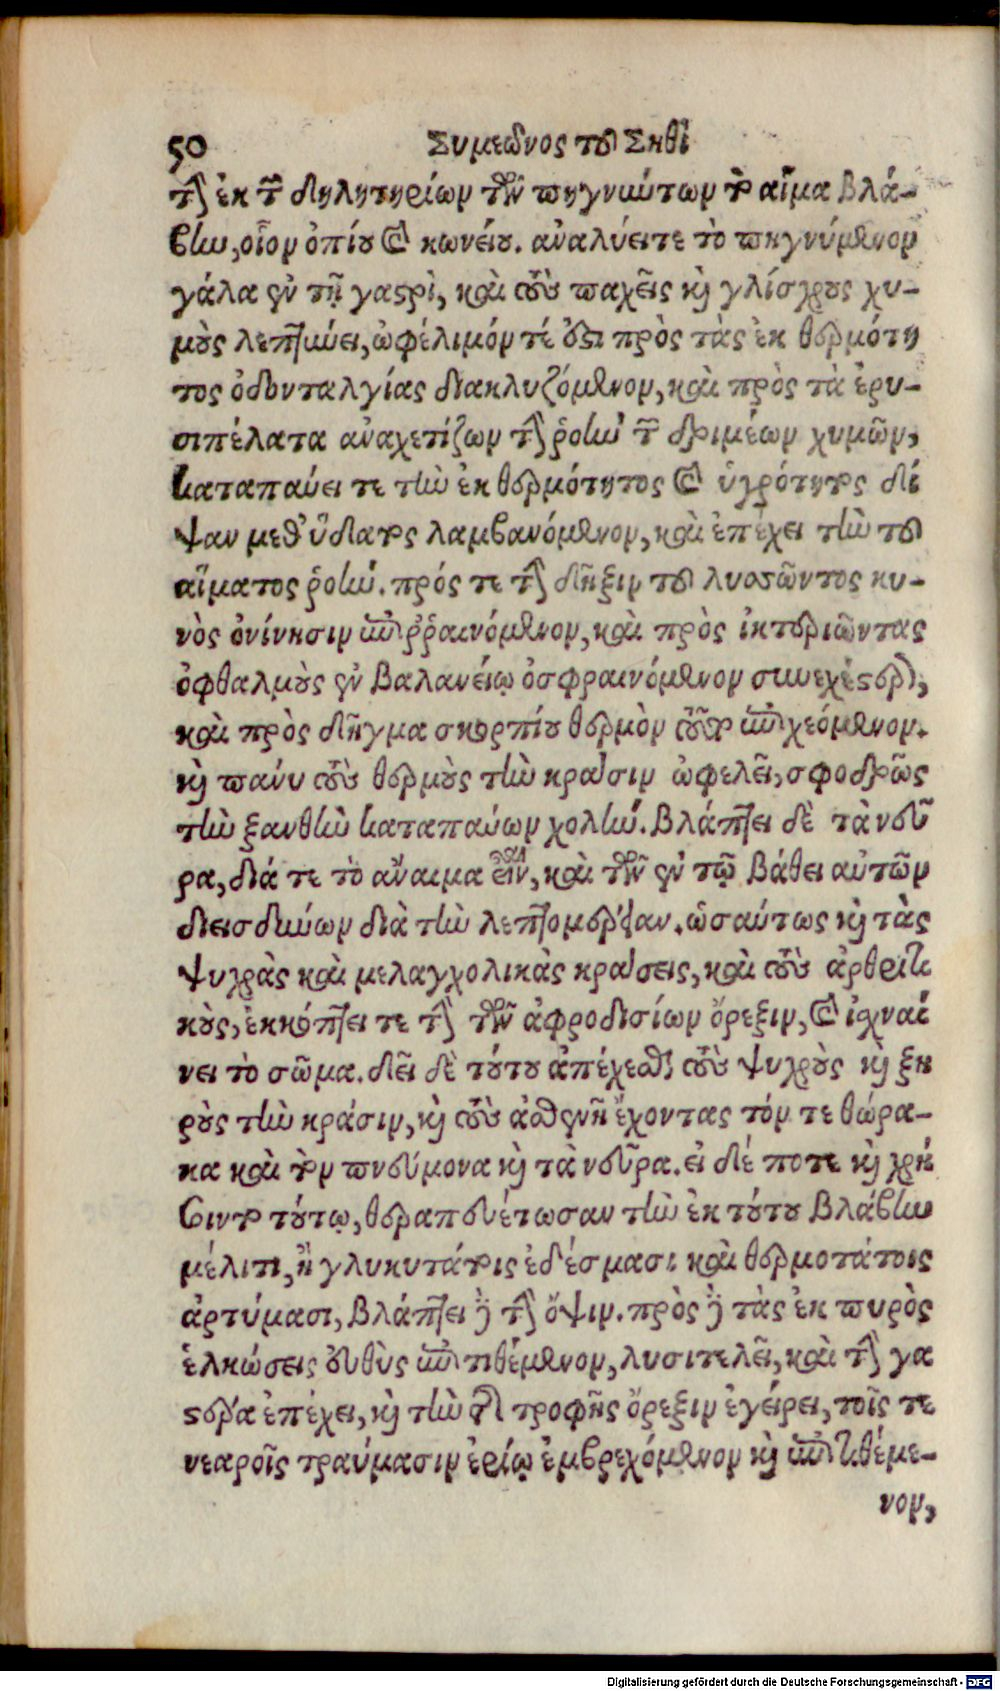 50 Συμεῶνος τοῦ Σηθὶ
τὴν ἐκ τῶν δηλητηρίων τῶν πηγνύντων τὸ αἷμα βλά-
βην, οἷον ὀπίου καὶ κωνείου. ἀναλύει τε τὸ πηγνύμενον
γάλα ἐν τῇ γαστρὶ, καὶ τοὺς παχεῖς καὶ γλίσχρους χυ-
μοὺς λεπτύνει, ὠφέλιμόν τέ ἐστι πρὸς τὰς ἐκ θερμότη
τος ὀδονταλγίας διακλυζόμενον, καὶ πρὸς τὰ ἐρυ-
σιπέλατα ἀναχετίζων τὴν ῥοὴν τῶν δριμέων χυμῶν,
καταπαύει τε τὴν ἐκ θερμότητος καὶ ὑγρότητος δί
ψαν μεθ' ὕδατος λαμβανόμενον, καὶ ἐπέχει τὴν τοῦ
αἵματος ῥοήν. πρός τε τὴν δῆξιν τοῦ λυσσῶντος κυ-
νὸς ὀνίνησιν ἐπιῤῥαινόμενον, καὶ πρὸς ἰκτεριῶντας
ὀφθαλμοὺς ἐν βαλανείῳ ὀσφραινόμενον συνεχέστερον,
καὶ πρὸς δῆγμα σκορπίου θερμὸν τούτῳ ἐπιχεόμενον.
καὶ πάνυ τοὺς θερμοὺς τὴν κρᾶσιν ὠφελεῖ, σφοδρῶς
τὴν ξανθὴν καταπαύων χολήν. βλάπτει δὲ τὰ νεῦ
ρα, διά τε τὸ ἄναιμα εἶναι, καὶ τῶν ἐν τῷ βάθει αὐτῶν
διεισδύνων διὰ τὴν λεπτομέρειαν. ὡσαύτως καὶ τὰς
ψυχρὰς καὶ μελαγχολικὰς κράσεις, καὶ τοὺς ἀρθριτι
κοὺς, ἐκκόπτει τε τὴν τῶν ἀφροδισίων ὄρεξιν, καὶ ἰχναί
νει τὸ σῶμα. δεῖ δὲ τούτου ἀπέχεσθαι τοὺς ψυχροὺς καὶ ξη
ροὺς τὴν κράσιν, καὶ τοὺς ἀσθενῆ ἔχοντας τόν τε θώρα-
κα καὶ τὸν πνεύμονα καὶ τὰ νεῦρα. εἰ δέ ποτε καὶ χρή
σοιντο τούτῳ, θεραπευέτωσαν τὴν ἐκ τούτου βλάβην
μέλιτι, ἢ γλυκυτάτοις ἐδέσμασι καὶ θερμοτάτοις
ἀρτύμασι, βλάπτει δὲ τὴν ὄψιν. πρὸς δὲ τὰς ἐκ πυρὸς
ἑλκώσεις εὐθὺς ἐπιτιθέμενον, λυσιτελεῖ, καὶ τὴν γα
στέρα ἐπέχει, καὶ τὴν τῆς τροφῆς ὄρεξιν ἐγείρει, τοῖς τε
νεαροῖς τραύμασιν ἐρίῳ ἐμβρεχόμενον καὶ ἐπιτιθέμε-
νον,
Digitalisierung gefördert durch die Deutsche Forschungsgemeinschaft - DFG